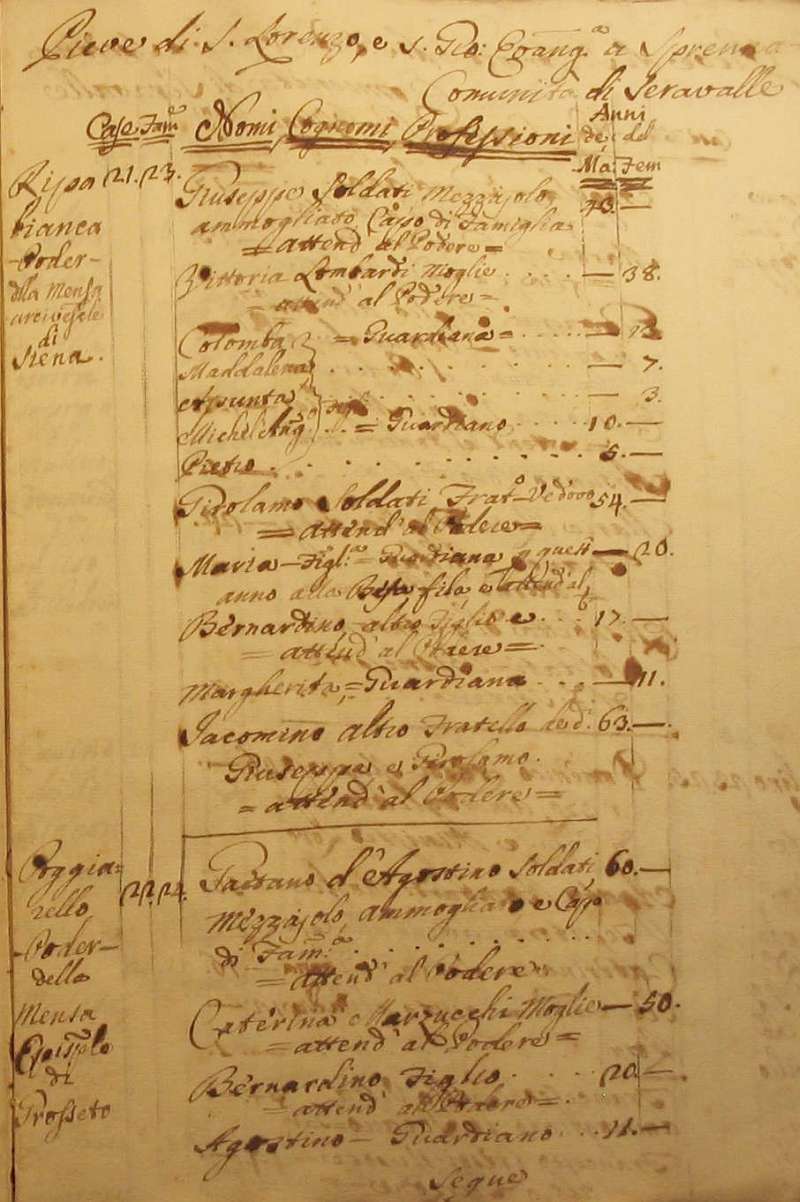 Pieve di S. Lorenzo, e S. Gio: Evang.a a Sprenna
Comunità di Seravalle
Case Fam.e Nomi, Cognomi, Professioni Anni de, del
Ma: Fem
Ripa 21. 23. Giuseppe Soldati Mezzajolo 40. —
bianca ammogliato Capo di Famiglia
-Poder- = attend' al Podere =
della Mensa Vittoria Lombardi Moglie . . . . — 38.
arcivescle = attend' al Podere =
di Colomba = Guardiana = . . . . —
Siena. Maddalena . . . . — 7.
Assunta . . . . — 3.
Michel Ang.o . . = Guardiano . . . . 10. —
Pietro . . . . 5. —
Girolamo Soldati Frat.o Vedovo 54. —
= attend' al Podere =
Maria - Figl.a = Guardiana quest — 20.
anno alla fila, e attend' al
Bernardino altro Figlio e . . 17. —
= attend' al Podere =
Margherita = Guardiana . . . — 11.
Jacomino altro Fratello de d.i 63. —
Giuseppe, e Girolamo.
= attend' al Podere =
Poggia= 22. 24. Gaetano d'Agostino Soldati 60. —
rello Mezzajolo, ammogliato e Capo
-Poder- di Fam.a . . . .
della = attend' al Podere
Mensa Caterina Marzucchi Moglie — 50.
Episple = attend' al Podere =
di Bernardino Figlio . . . . 20 —
Grosseto = attend' al Podere =
Agostino - Guardiano . . 11. —
Segue